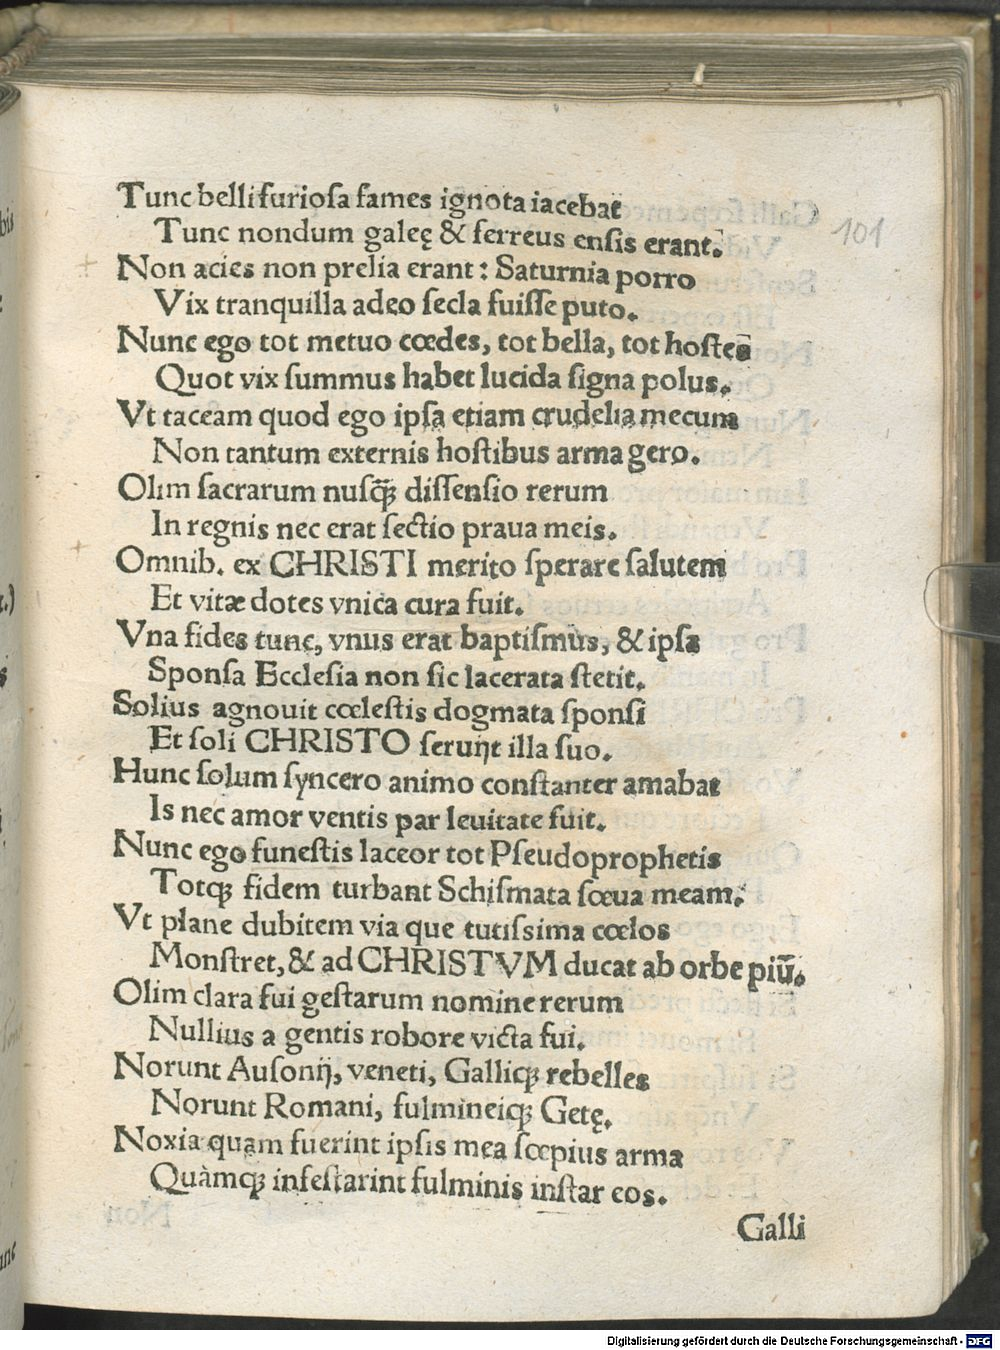 Tunc belli furiosa fames ignota iacebat
Tunc nondum galeę & ferreus ensis erant.
Non acies non prelia erant: Saturnia porro
Vix tranquilla adeo secla fuisse puto.
Nunc ego tot metuo cœdes, tot bella, tot hostes
Quot vix summus habet lucida signa polus.
Vt taceam quod ego ipsa etiam crudelia mecum
Non tantum externis hostibus arma gero.
Olim sacrarum nusq̃ꝫ dissensio rerum
In regnis nec erat sectio praua meis.
Omnib. ex CHRISTI merito sperare salutem
Et vitæ dotes vnica cura fuit.
Vna fides tunc, vnus erat baptismus, & ipsa
Sponsa Ecclesia non sic lacerata stetit.
Solius agnouit cœlestis dogmata sponsi
Et soli CHRISTO seruĳt illa suo.
Hunc solum syncero animo constanter amabat
Is nec amor ventis par leuitate fuit.
Nunc ego funestis laceor tot Pseudoprophetis
Totqꝫ fidem turbant Schismata sœua meam.
Vt plane dubitem via que tutissima cœlos
Monstret, & ad CHRISTVM ducat ab orbe piũ.
Olim clara fui gestarum nomine rerum
Nullius a gentis robore victa fui.
Norunt Ausonĳ, veneti, Galliqꝫ rebelles
Norunt Romani, fulmineiqꝫ Getę.
Noxia quam fuerint ipsis mea sœpius arma
Quàmqꝫ infestarint fulminis instar eos.
Galli
101
Digitalisierung gefördert durch die Deutsche Forschungsgemeinschaft - DFG